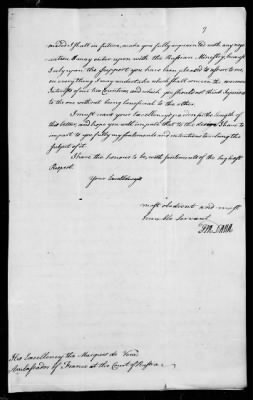 7
needed I shall in future, make you fully acquainted with any ne
gociation I may enter upon with the Russian Ministry, because
I rely upon the support you have been pleased to offer to me,
in every thing I may undertake which shall concern the common
Interests of our two Countries and which you shall not think Injurious
to the one without being beneficial to the other.
I must crave your Excellency's pardon for the length of
this letter, and hope you will impute it to the desire I have to
impart to you fully my sentiments and intentions touching the
subject of it.
I have the honour to be, with sentiments of the highest
Respect.
Your Excellency's
most obedient and most
humble Servant
FRA. DANA
His Excellency the Marquis de Verac
Ambassador of France at the Court of Russia.